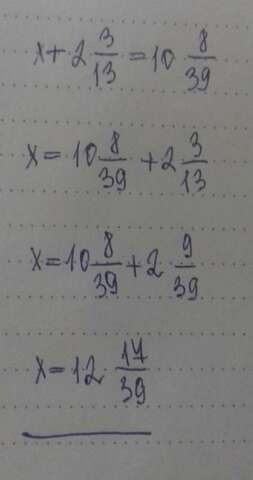 x + 2 3/13 = 10 8/39
x = 10 8/39 + 2 3/13
x = 10 8/39 + 2 9/39
x = 12 17/39